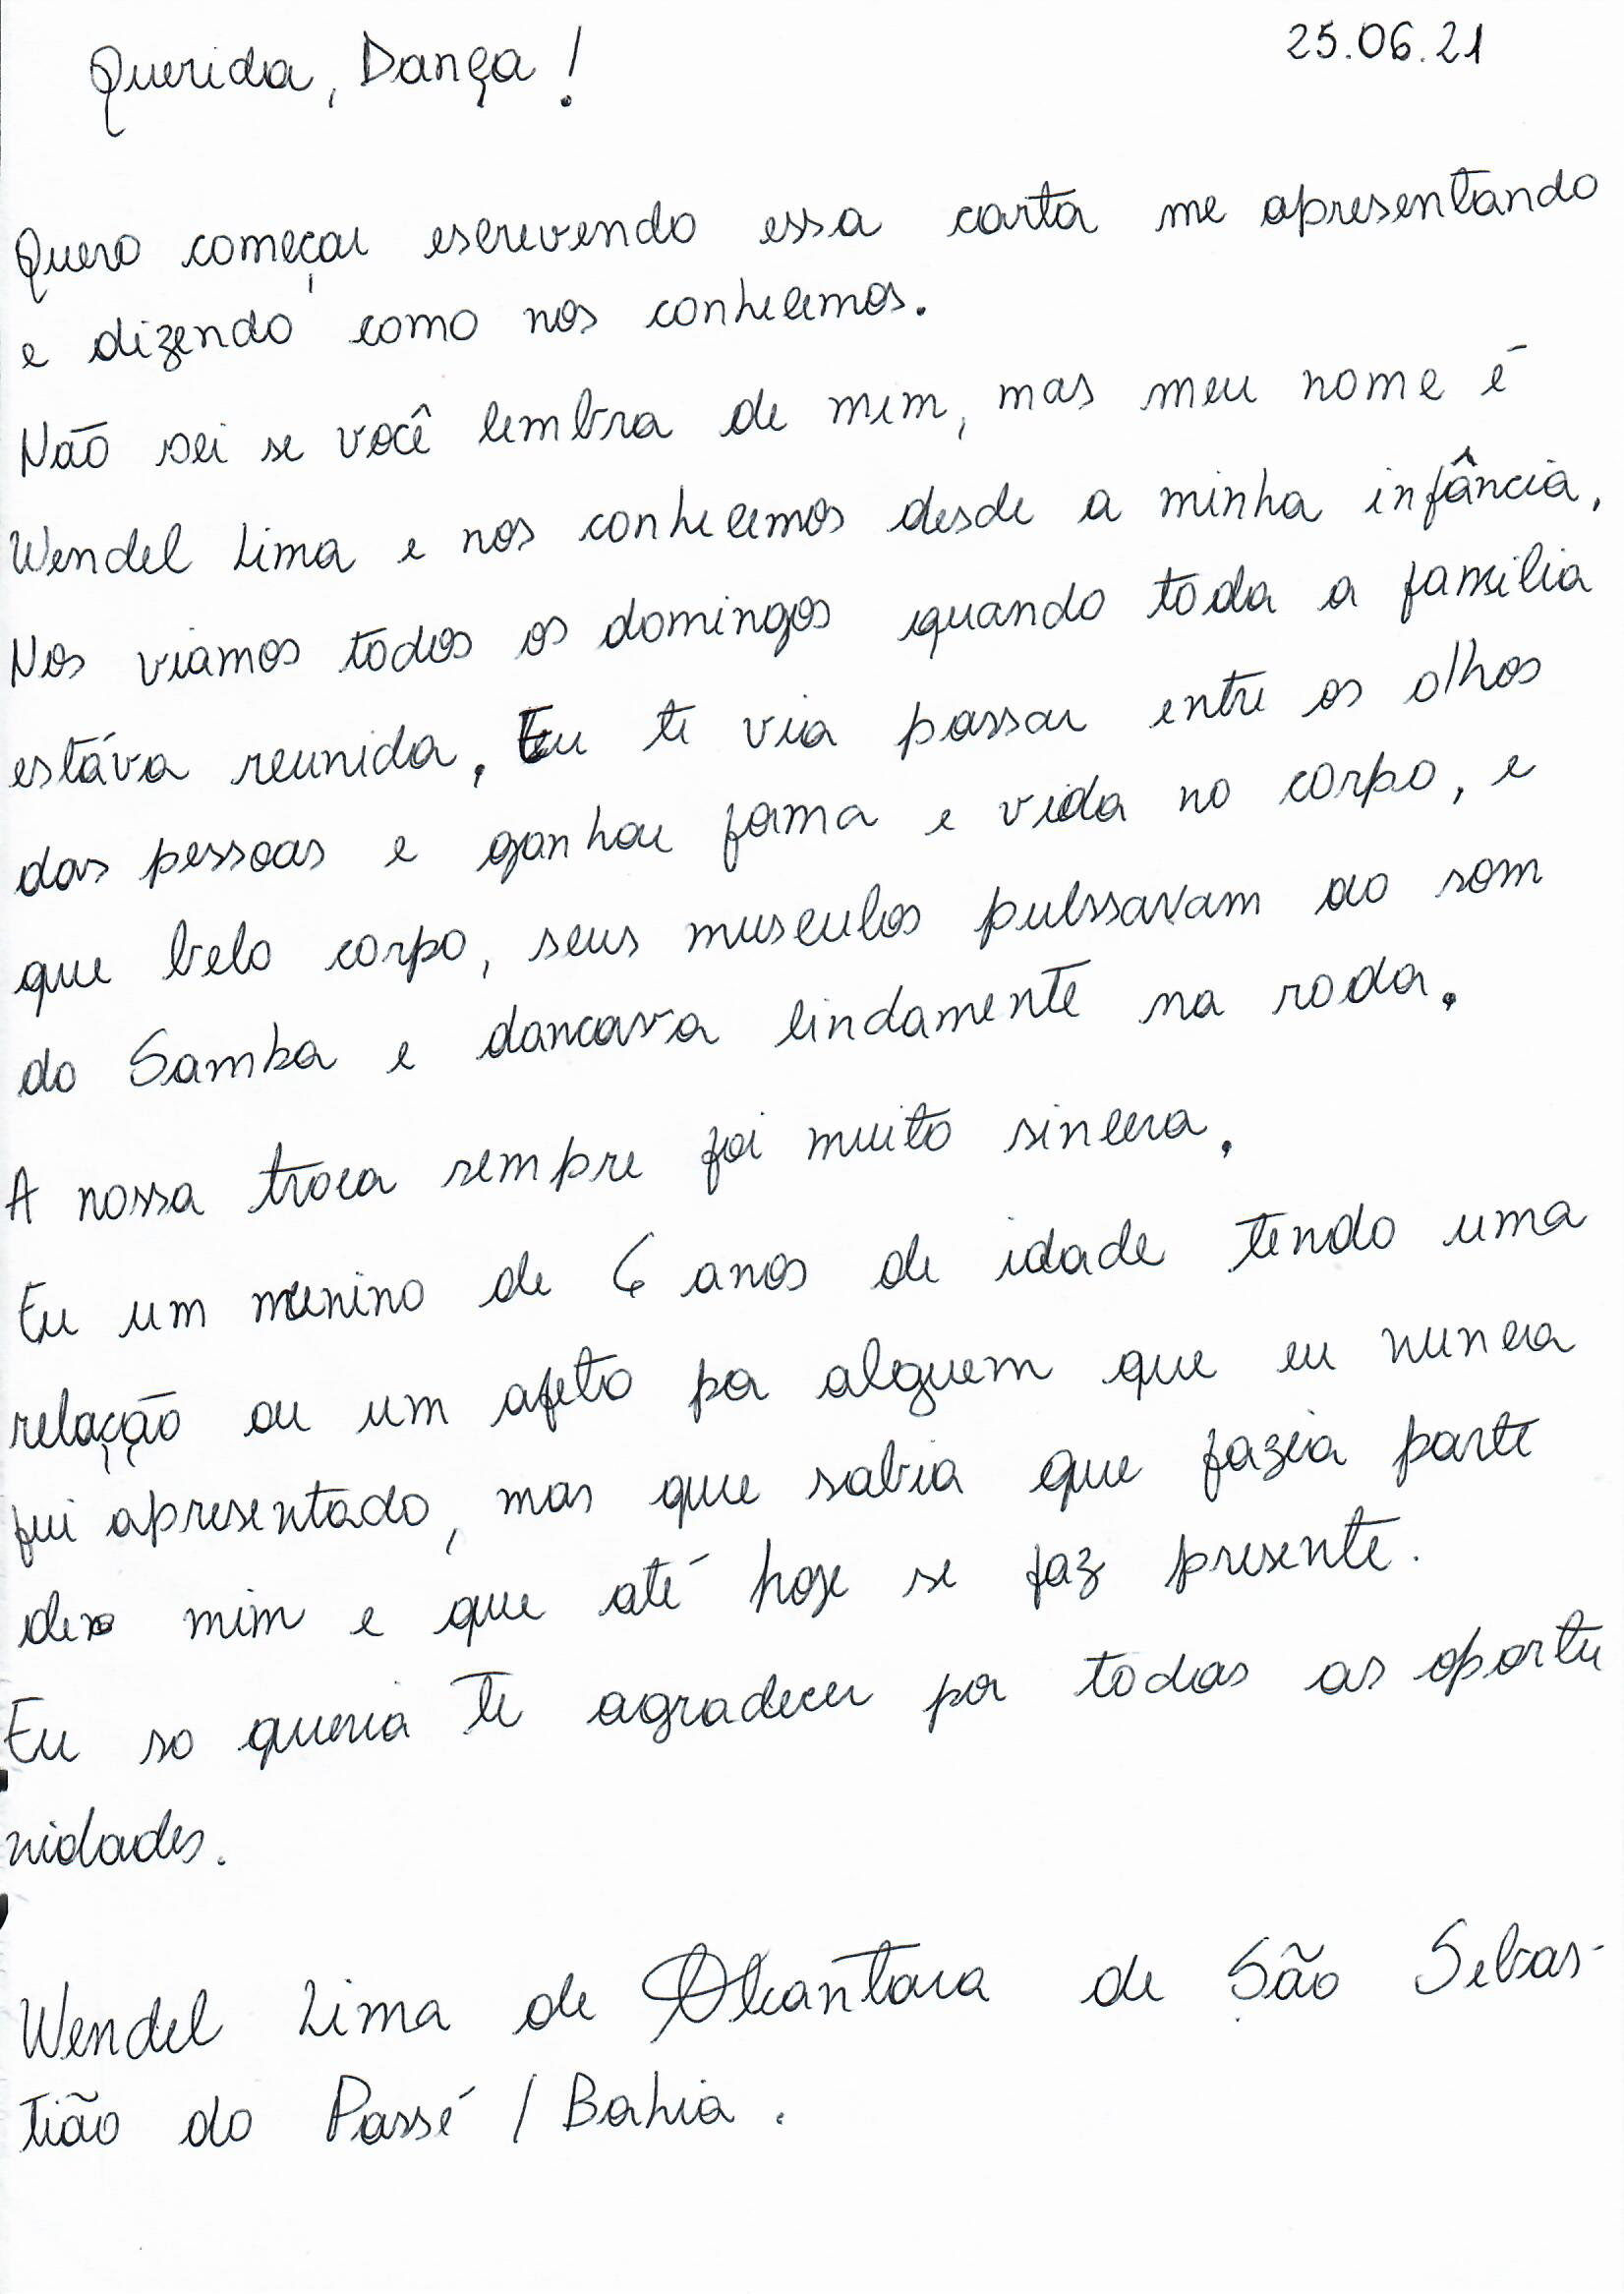 25.06.21
Querida, Dança!
Quero começar escrevendo essa carta me apresentando
e dizendo como nos conhecemos.
Não sei se você lembra de mim, mas meu nome é
Wendel Lima e nos conhecemos desde a minha infância,
Nos viamos todos os domingos quando toda a familia
estáva reunida. Eu te via passar entre os olhos
das pessoas e ganhar forma e vida no corpo, e
que belo corpo, seus musculos pulssavam ao som
do Samba e dancava lindamente na roda.
A nossa troca sempre foi muito sincera.
Eu um menino de 6 anos de idade tendo uma
relaçção ou um afeto por alguem que eu nunca
fui apresentado, mas que sabia que fazia parte
de mim e que até hoje se faz presente.
Eu so queria te agradecer por todas as oportu
nidades.
Wendel Lima de Alcantara de São Sebas-
tião do Passé / Bahia.